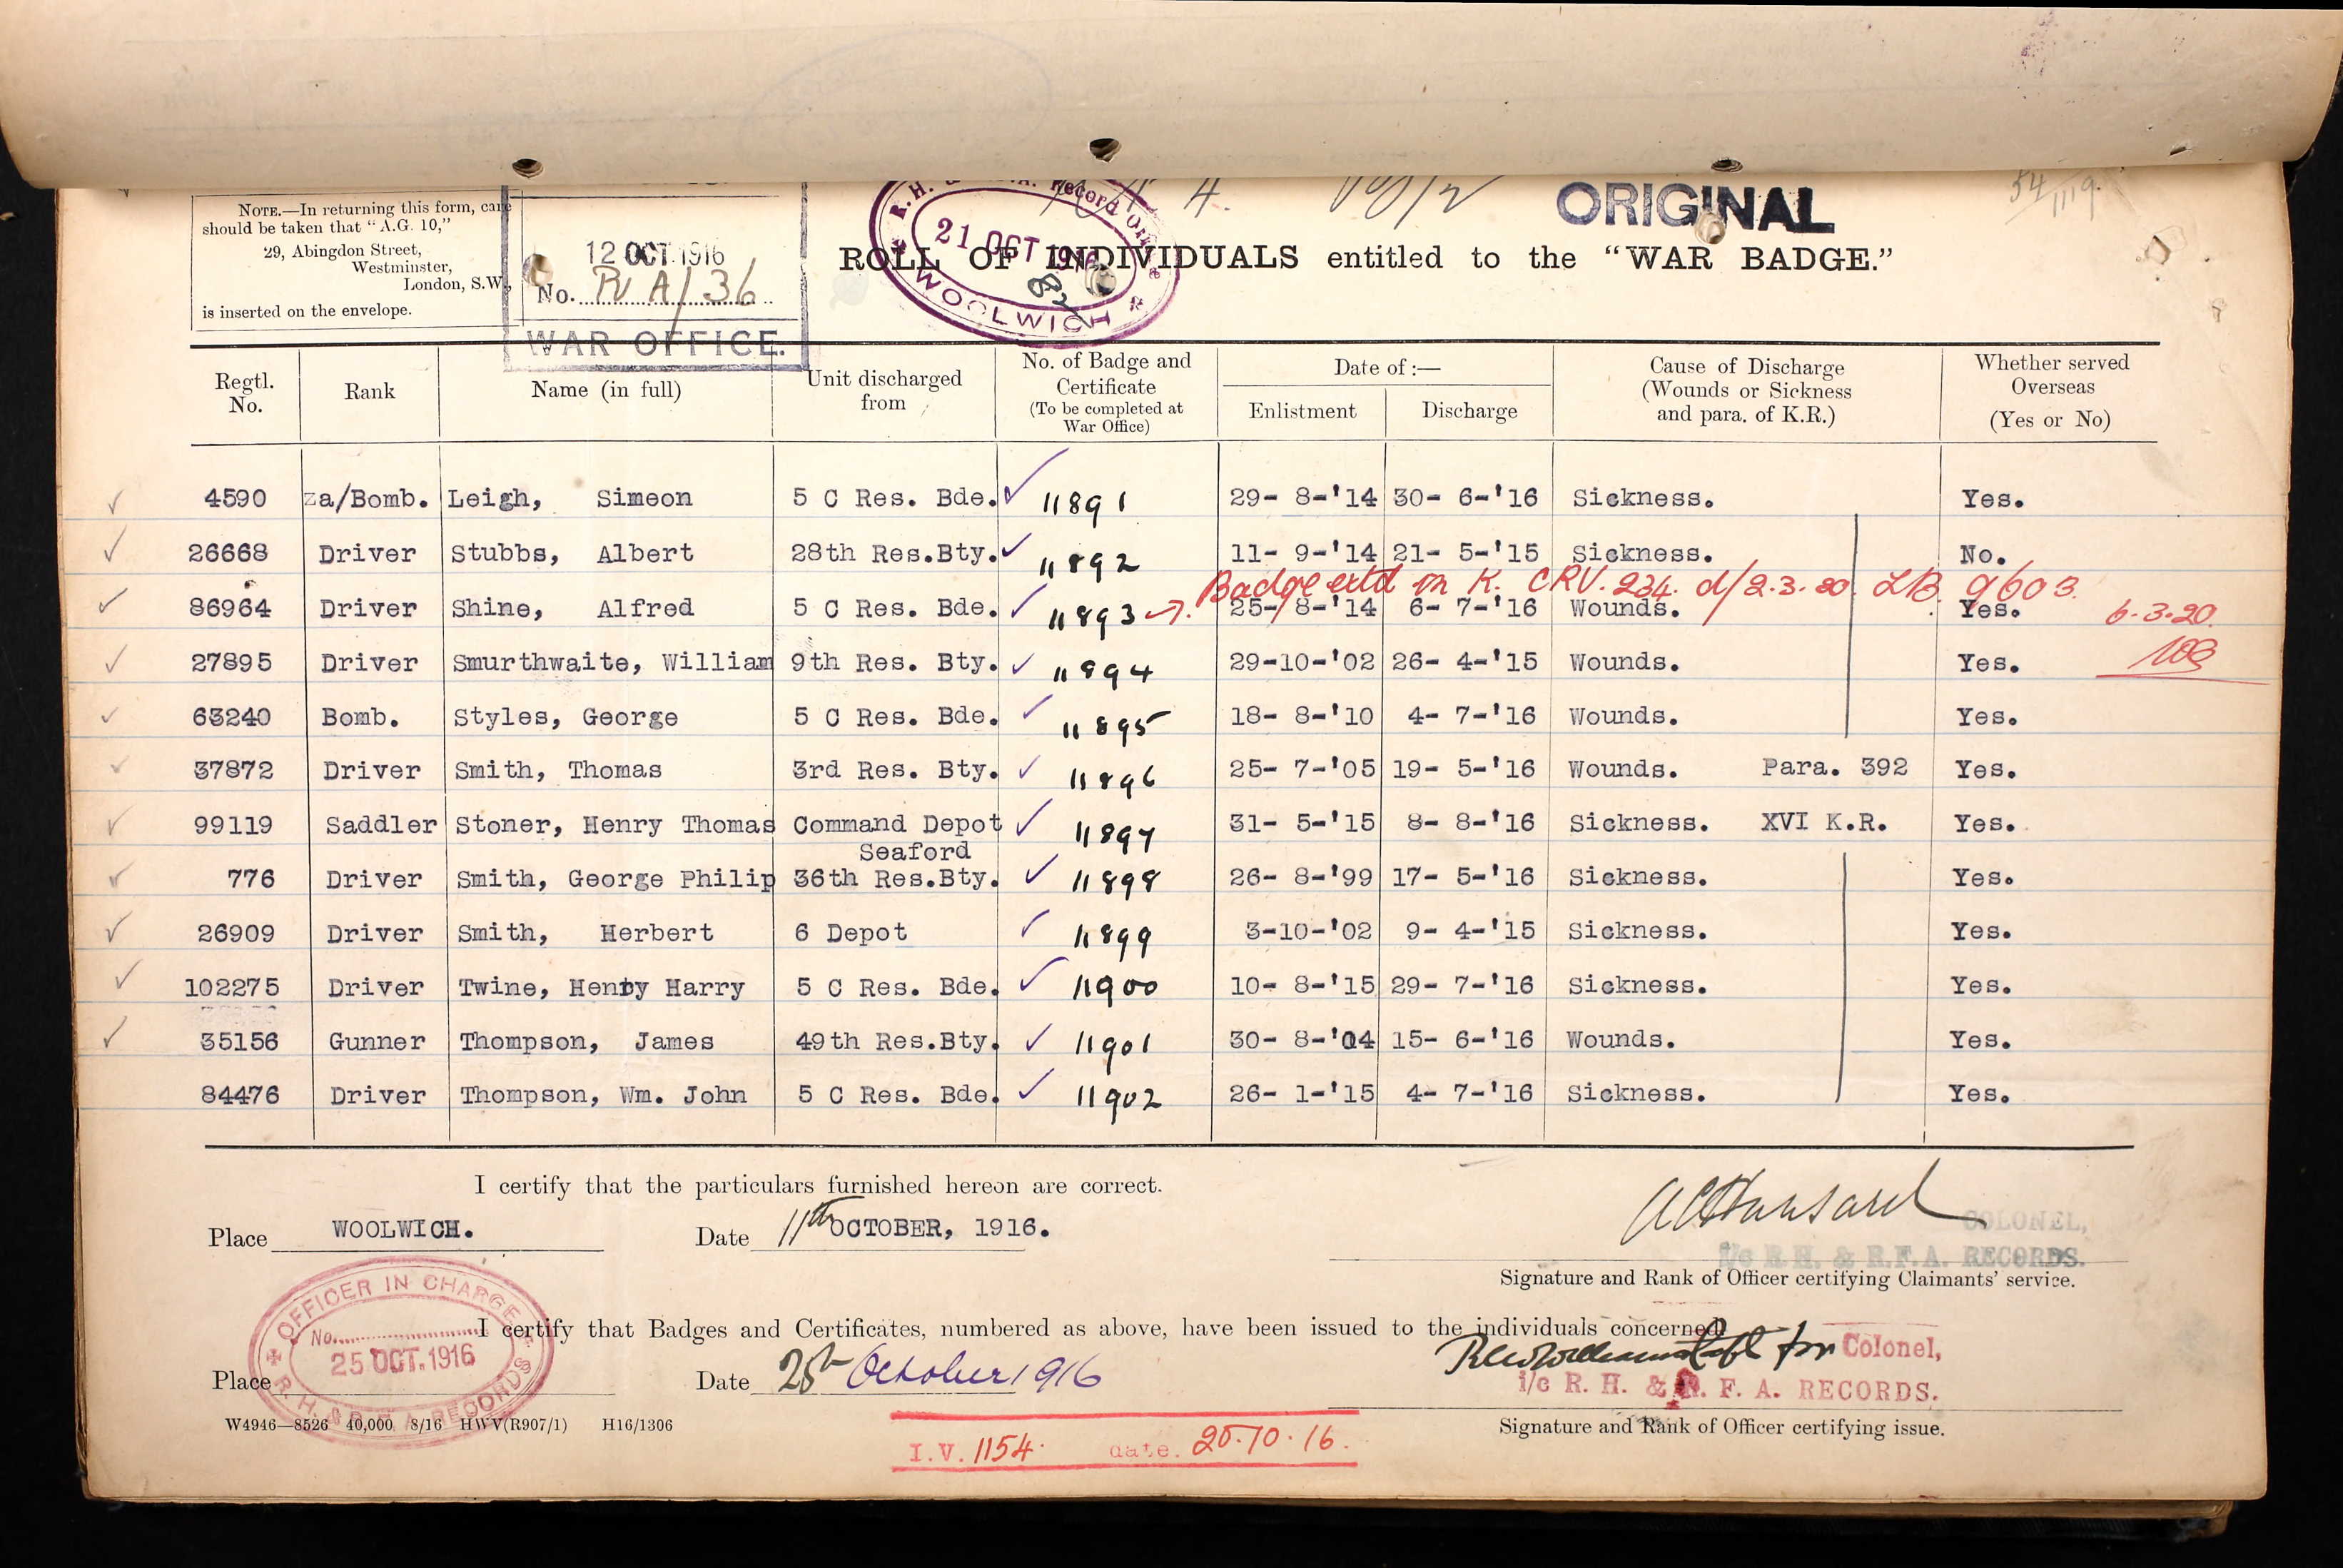 ORIGINAL
NOTE.—In returning this form, care
should be taken that "A.G. 10,"
29, Abingdon Street,
Westminster,
London, S.W.,
is inserted on the envelope.
12 OCT. 1916
No. R A/36
WAR OFFICE.
R.H. & R.F.A. Record Office
21 OCT 1916
WOOLWICH
ROLL OF INDIVIDUALS entitled to the "WAR BADGE."
Regtl. No. Rank Name (in full) Unit discharged from No. of Badge and Certificate (To be completed at War Office) Date of :— Enlistment Discharge Cause of Discharge (Wounds or Sickness and para. of K.R.) Whether served Overseas (Yes or No)
4590 za/Bomb. Leigh, Simeon 5 C Res. Bde. 11891 29- 8-'14 30- 6-'16 Sickness. Yes.
26668 Driver Stubbs, Albert 28th Res.Bty. 11892 11- 9-'14 21- 5-'15 Sickness. No.
Badge extd on K. CRV. 234. d/2.3.20. LB. 9603.
86964 Driver Shine, Alfred 5 C Res. Bde. 11893 25- 8-'14 6- 7-'16 Wounds. Yes. 6.3.20.
27895 Driver Smurthwaite, William 9th Res. Bty. 11894 29-10-'02 26- 4-'15 Wounds. Yes.
63240 Bomb. Styles, George 5 C Res. Bde. 11895 18- 8-'10 4- 7-'16 Wounds. Yes.
37872 Driver Smith, Thomas 3rd Res. Bty. 11896 25- 7-'05 19- 5-'16 Wounds. Para. 392 Yes.
99119 Saddler Stoner, Henry Thomas Command Depot 11897 31- 5-'15 8- 8-'16 Sickness. XVI K.R. Yes.
Seaford
776 Driver Smith, George Philip 36th Res.Bty. 11898 26- 8-'99 17- 5-'16 Sickness. Yes.
26909 Driver Smith, Herbert 6 Depot 11899 3-10-'02 9- 4-'15 Sickness. Yes.
102275 Driver Twine, Henry Harry 5 C Res. Bde. 11900 10- 8-'15 29- 7-'16 Sickness. Yes.
35156 Gunner Thompson, James 49th Res.Bty. 11901 30- 8-'04 15- 6-'16 Wounds. Yes.
84476 Driver Thompson, Wm. John 5 C Res. Bde. 11902 26- 1-'15 4- 7-'16 Sickness. Yes.
I certify that the particulars furnished hereon are correct.
Place WOOLWICH. Date 11th OCTOBER, 1916.
A C Hansard COLONEL,
i/c R.H. & R.F.A. RECORDS.
Signature and Rank of Officer certifying Claimants' service.
OFFICER IN CHARGE
No.
25 OCT. 1916
R.H. & R.F.A. RECORDS
I certify that Badges and Certificates, numbered as above, have been issued to the individuals concerned.
for Colonel,
i/c R. H. & R. F. A. RECORDS.
Place Date 25th October 1916
W4946—8526 40,000 8/16 HWV(R907/1) H16/1306
Signature and Rank of Officer certifying issue.
I.V. 1154. date. 25.10.16.